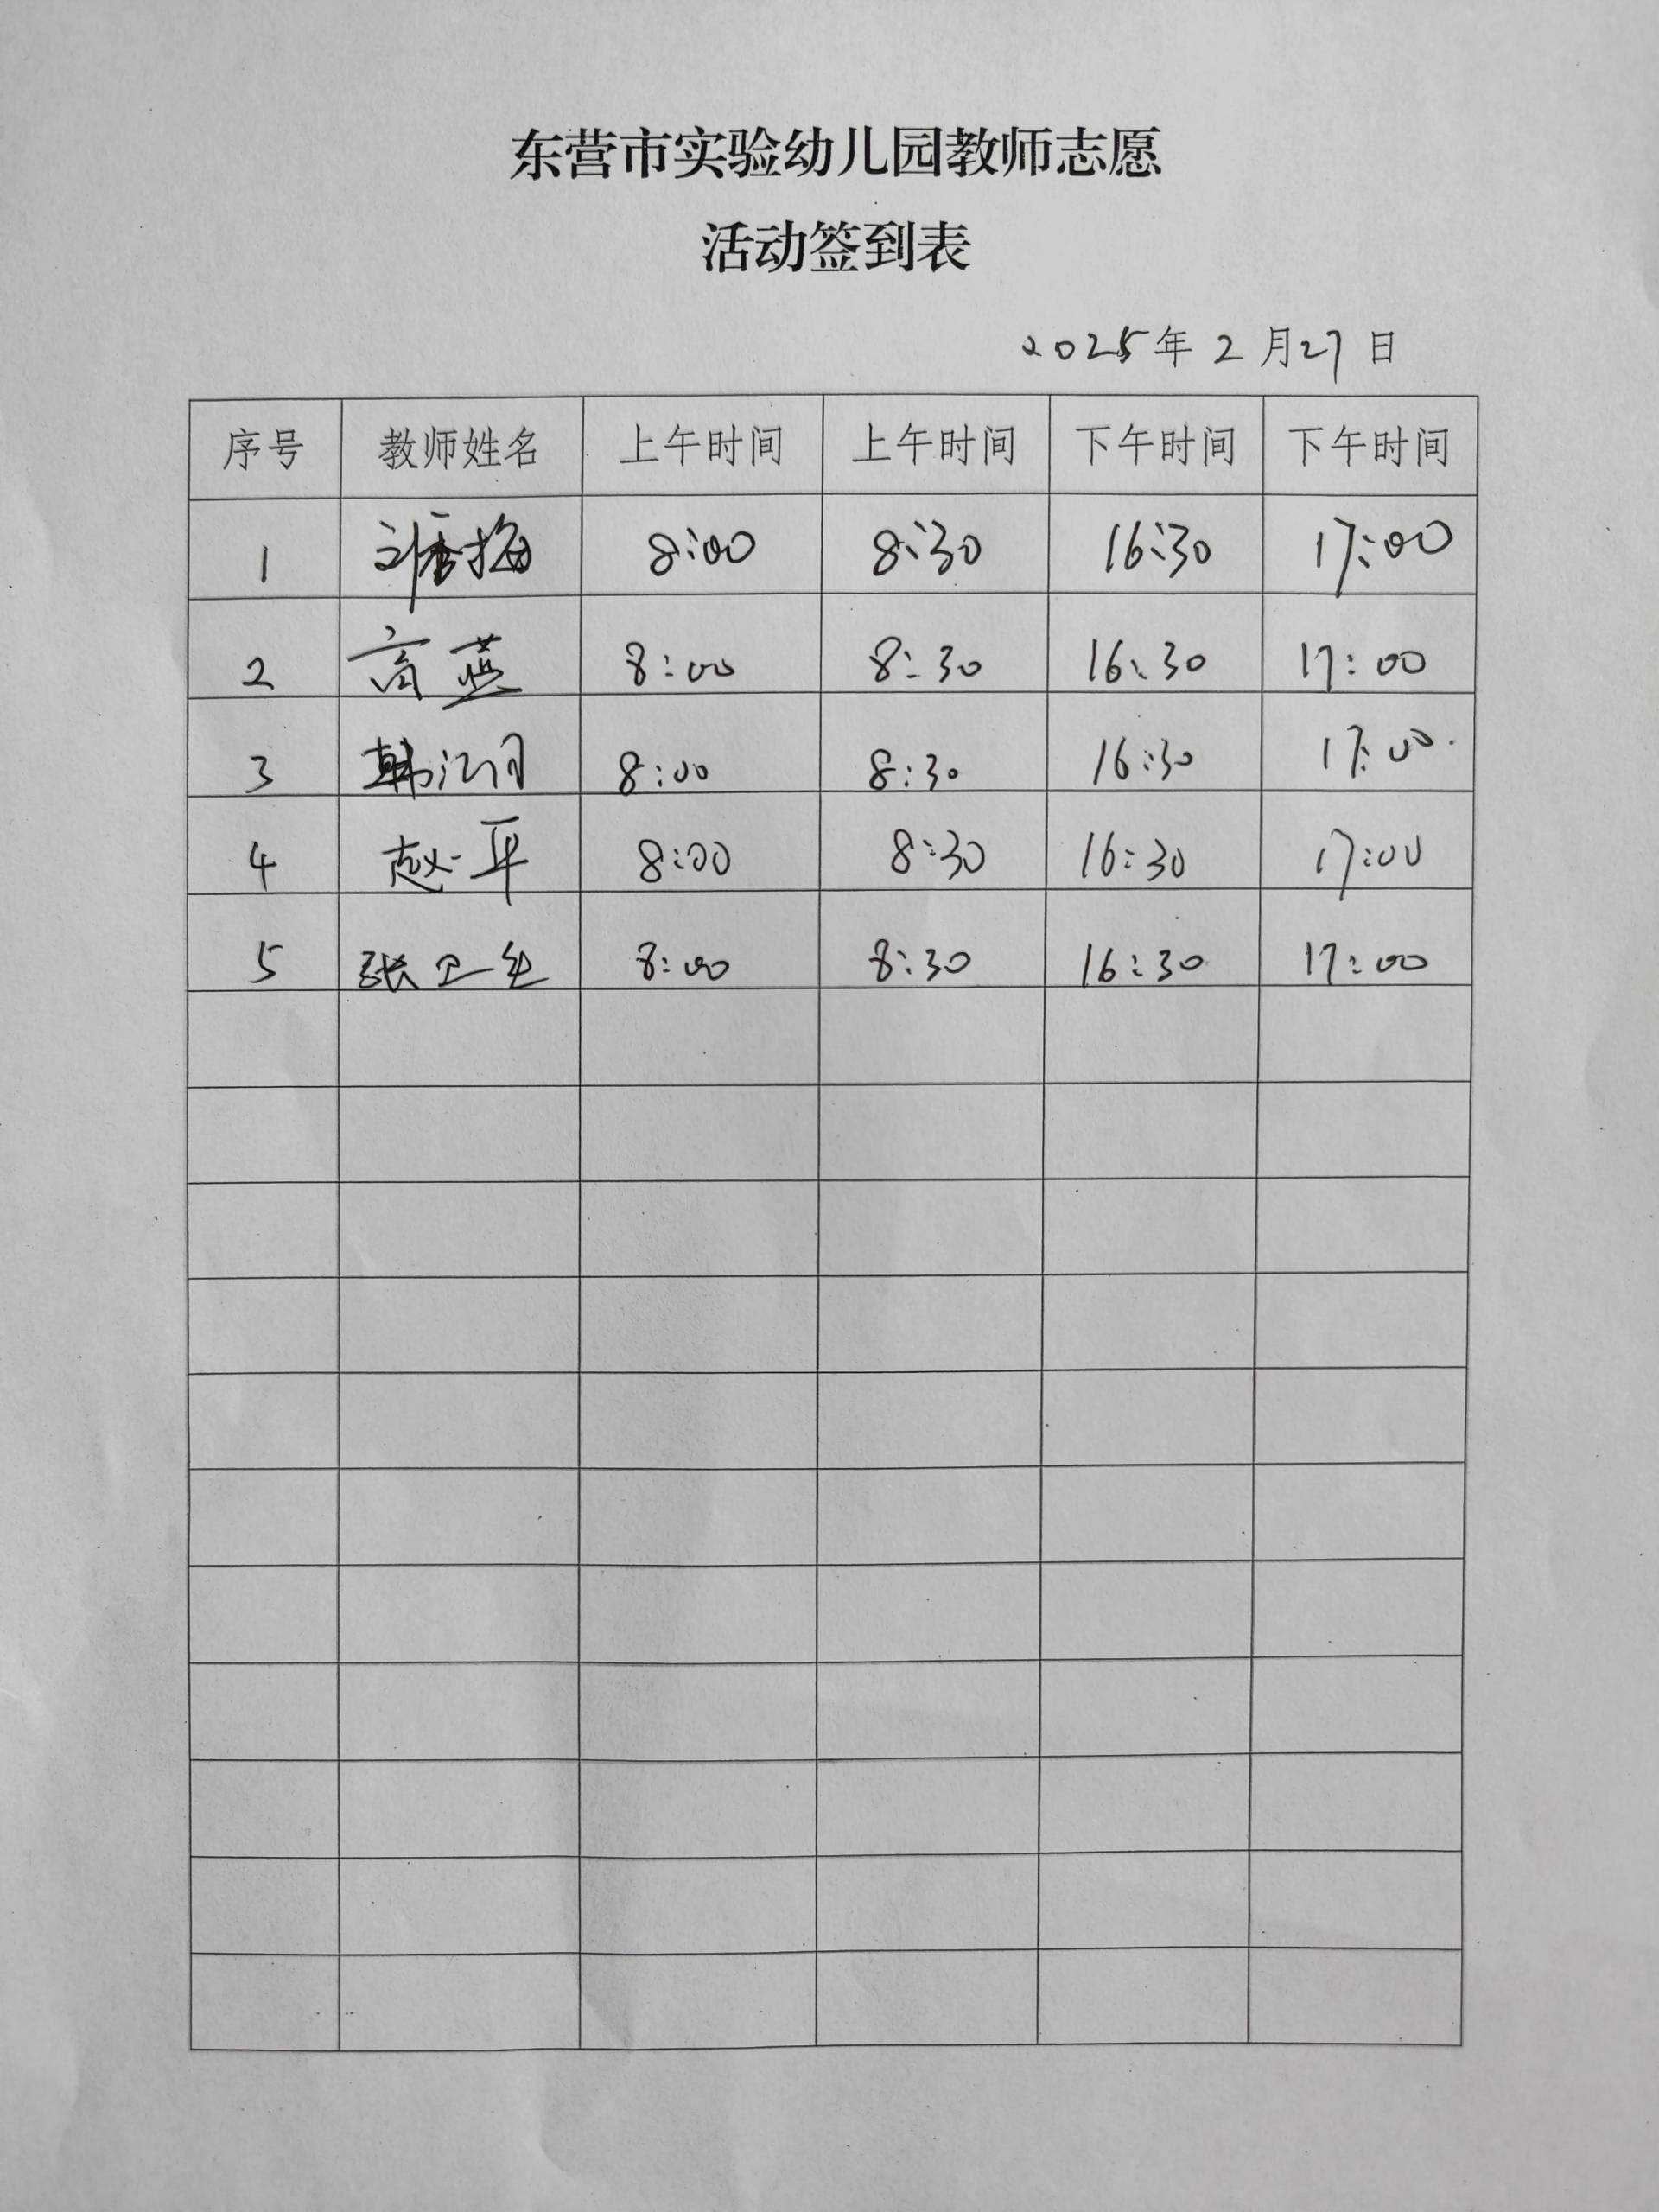 东营市实验幼儿园教师志愿
活动签到表
2025年2月27日
序号 教师姓名 上午时间 上午时间 下午时间 下午时间
1 刘秀梅 8:00 8:30 16:30 17:00
2 高燕 8:00 8:30 16:30 17:00
3 韩 8:00 8:30 16:30 17:00
4 赵平 8:00 8:30 16:30 17:00
5 张卫 8:00 8:30 16:30 17:00